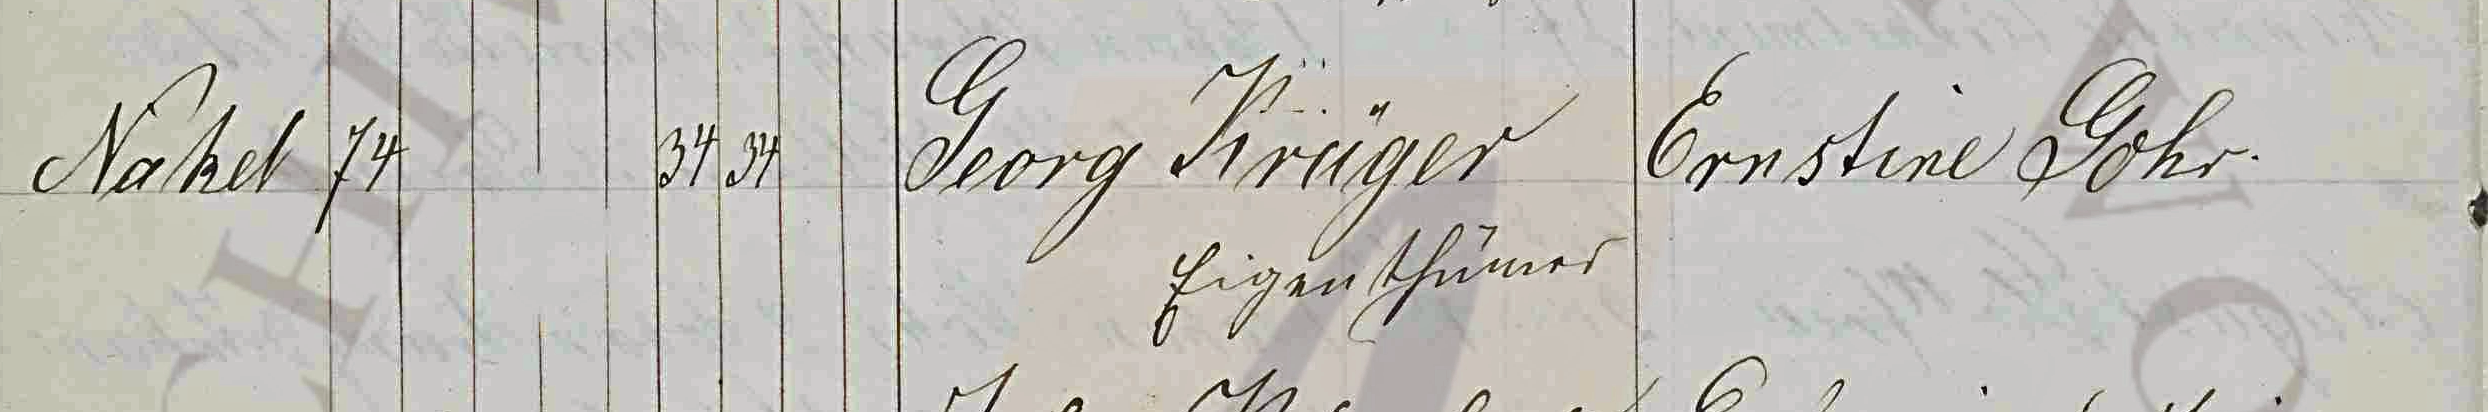 Nakel 74 34 34 Georg Krüger Ernstine Gohr.
Eigenthümer